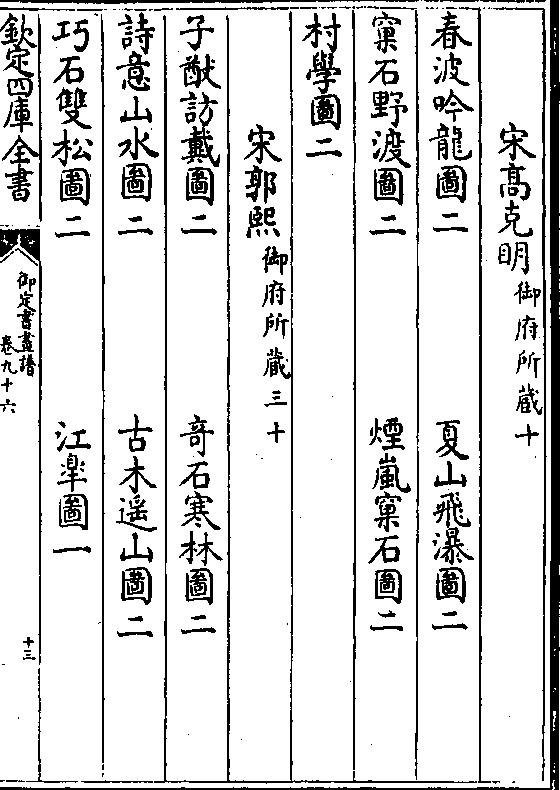 宋髙克明御府所蔵十
春波吟龍圖二　夏山飛瀑圖二
窠石野渡圖二　煙嵐窠石圖二
村學圖二
宋郭熙御府所蔵三十
子猷訪戴圖二　竒石寒林圖二
詩意山水圖二　古木遥山圖二
巧石雙松圖二　江皐圖一
欽定四庫全書
御定書畫譜
卷九十六
十三